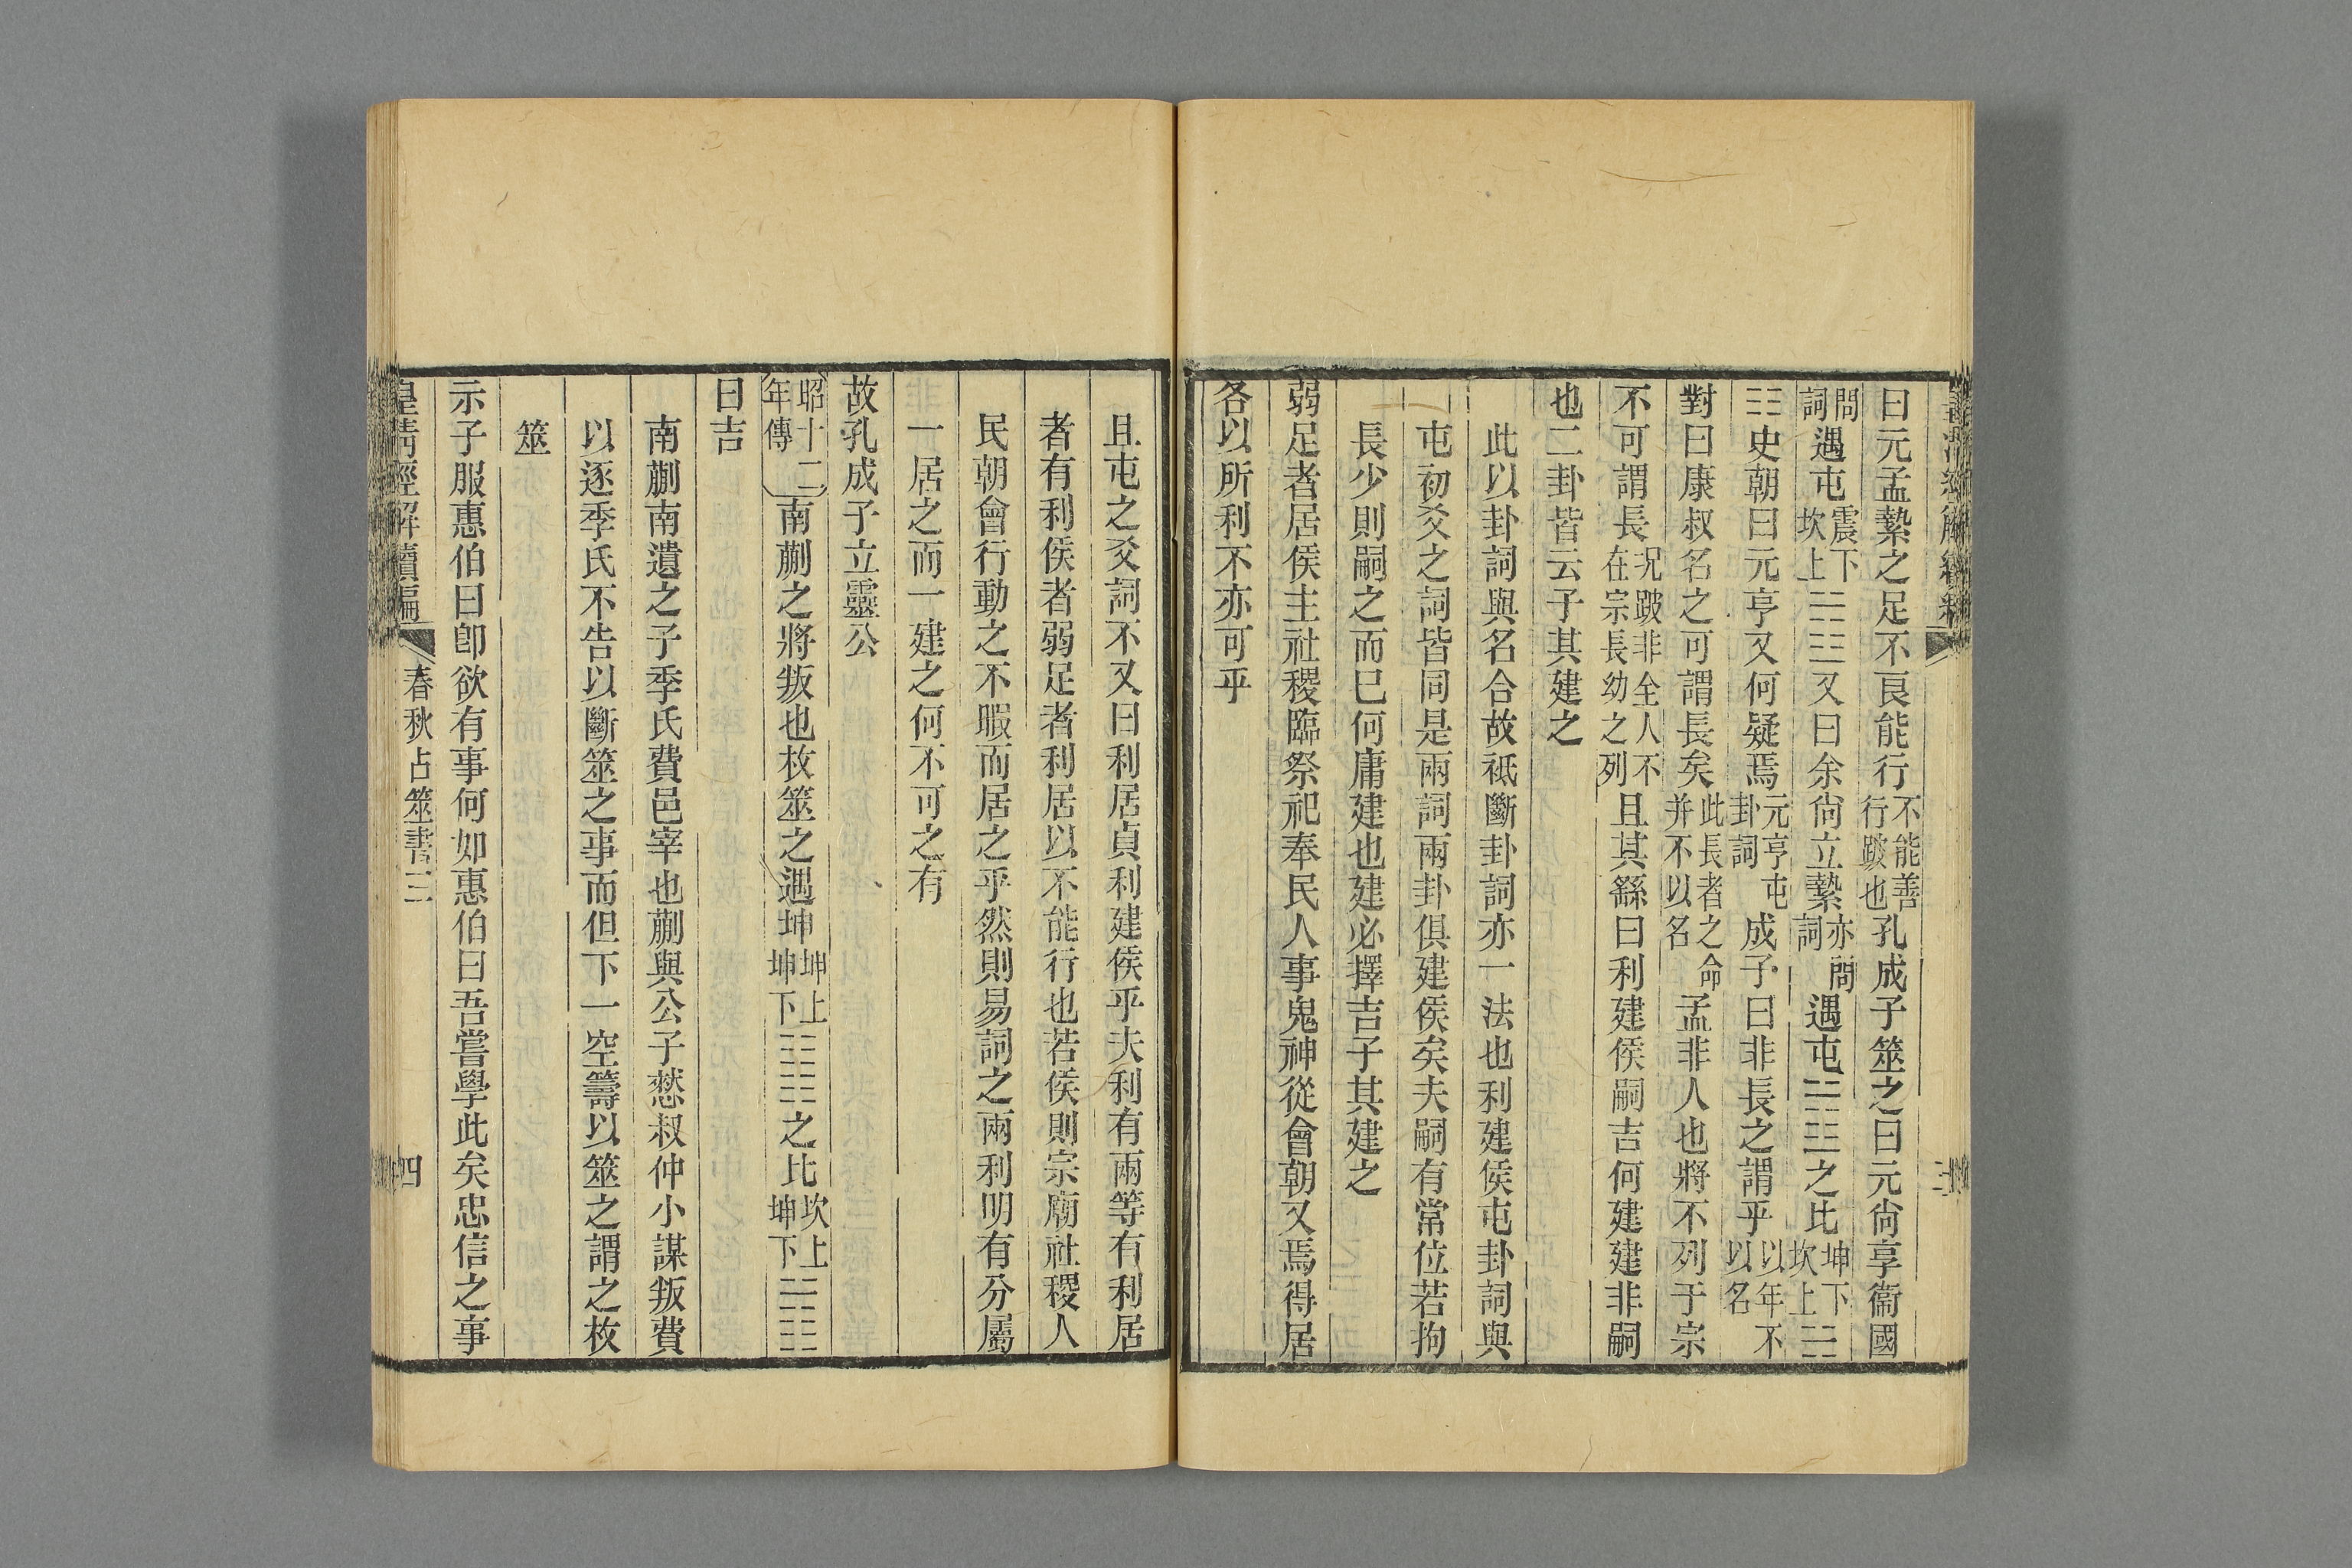 曰元孟縶之足不良能行不能善行跛也孔成子筮之曰元尙享衞國
問詞遇屯震下坎上䷂又曰余尙立縶亦問詞遇屯䷂之比坤下坎上
䷇史朝曰元亨又何疑焉元亨屯卦詞成子曰非長之謂乎以年不以名
對曰康叔名之可謂長矣此長者之命并不以名孟非人也將不列于宗
不可謂長況跛非全人不在宗長幼之列且其繇曰利建侯嗣吉何建建非嗣
也二卦皆云子其建之
此以卦詞與名合故祗斷卦詞亦一法也利建侯屯卦詞與
屯初爻之詞皆同是兩詞兩卦俱建侯矣夫嗣有常位若拘
長少則嗣之而已何庸建也建必擇吉子其建之
弱足者居侯主社稷臨祭祀奉民人事鬼神從會朝又焉得居
各以所利不亦可乎
且屯之爻詞不又曰利居貞利建侯乎夫利有兩等有利居
者有利侯者弱足者利居以不能行也若侯則宗廟社稷人
民朝會行動之不暇而居之乎然則易詞之兩利明有分屬
一居之而一建之何不可之有
故孔成子立靈公
昭十二年傳南蒯之將叛也枚筮之遇坤坤上坤下䷁之比坎上坤下䷇
曰吉
南蒯南遺之子季氏費邑宰也蒯與公子憖叔仲小謀叛費
以逐季氏不告以斷筮之事而但下一空籌以筮之謂之枚
筮
示子服惠伯曰卽欲有事何如惠伯曰吾嘗學此矣忠信之事
皇清經解續編 春秋占筮書三 四